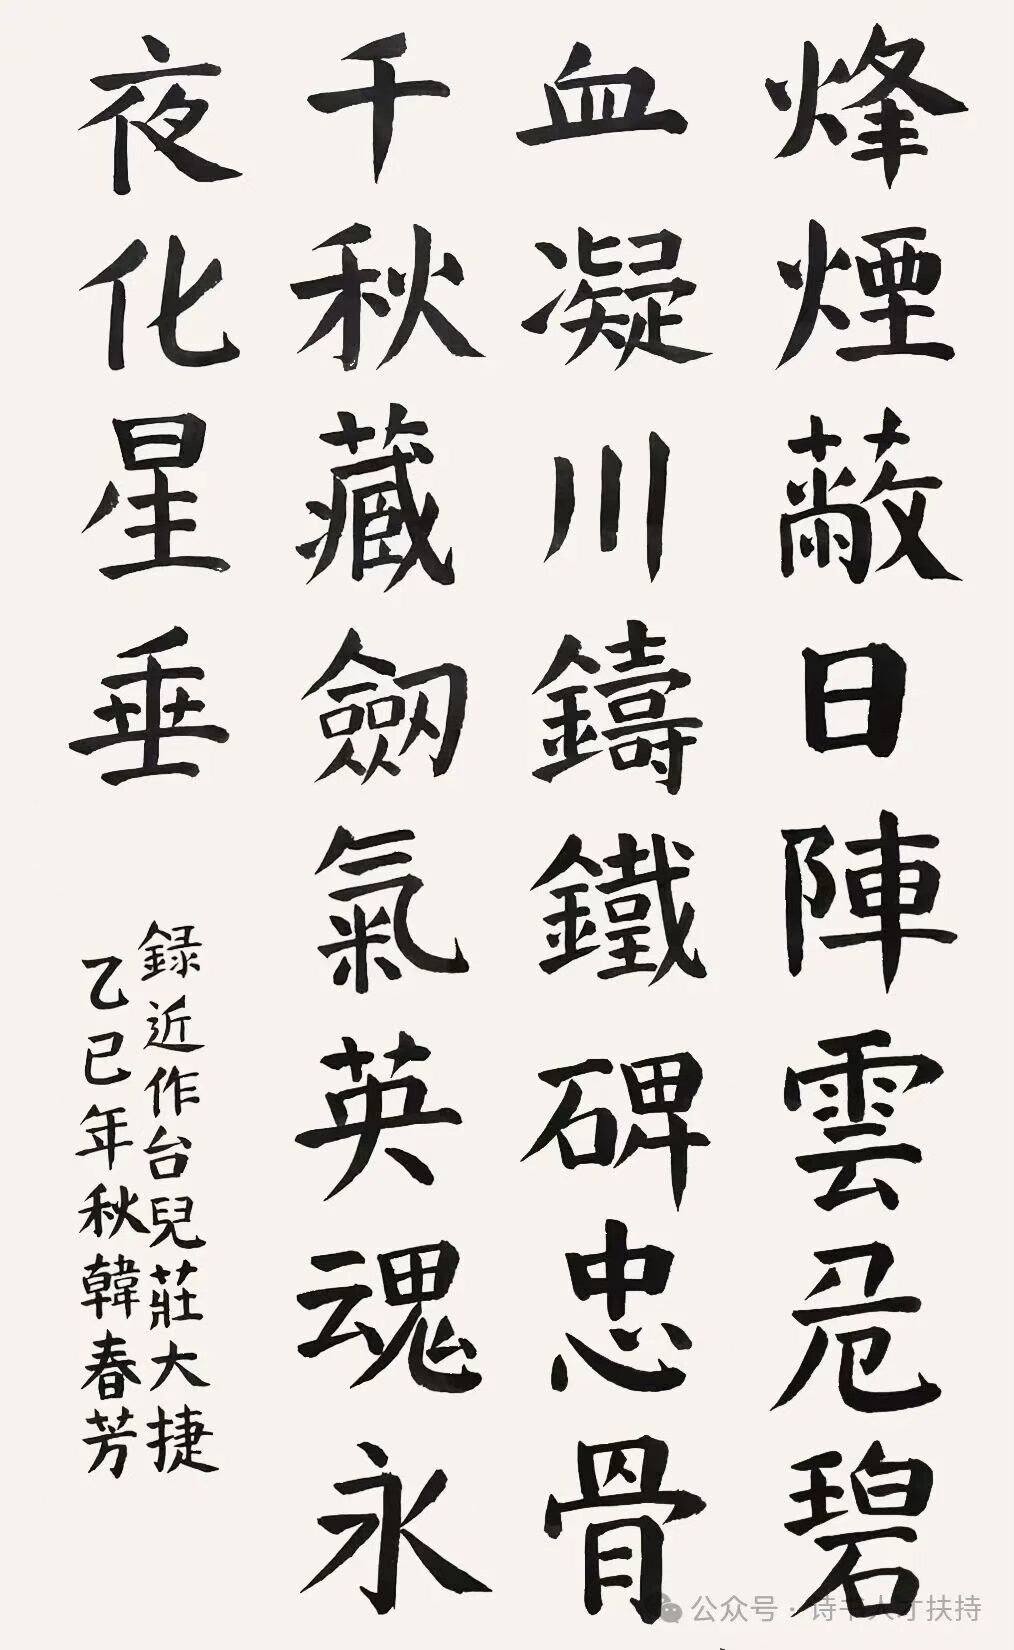 烽煙蔽日陣雲危碧
血凝川鑄鐵碑忠骨
千秋藏劒氣英魂永
夜化星垂
録近作台兒莊大捷
乙巳年秋韓春芳
公众号·诗书人才扶持